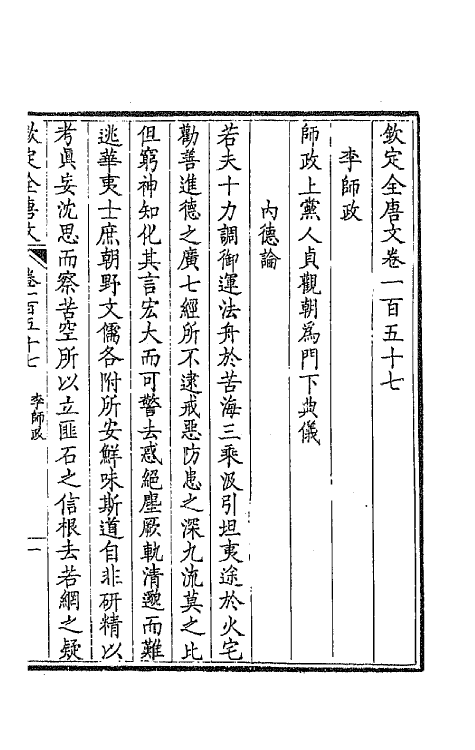 欽定全唐文卷一百五十七
李師政
師政上黨人貞觀朝為門下典儀
內德論
若夫十力調御運法舟於苦海三乘汲引坦夷途於火宅
勸善進德之廣七經所不逮戒惡防患之深九流莫之比
但窮神知化其言宏大而可警去惑絕塵厥軌清邈而難
逃華夷士庶朝野文儒各附所安鮮味斯道自非研精以
考眞妄沈思而察苦空所以立匪石之信根去若網之疑
欽定全唐文 卷一百五十七 李師政 一